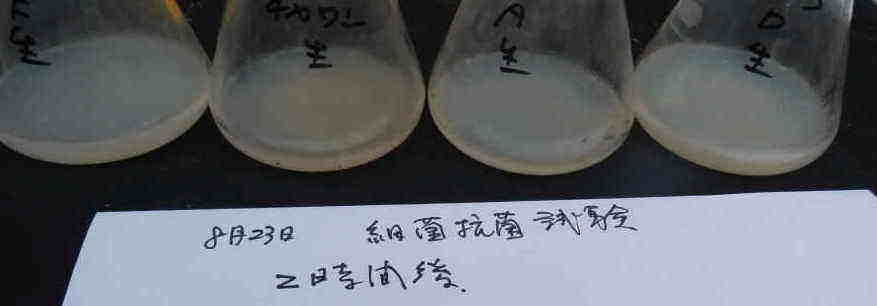 生
チカワン
生
A
生
D
生
8月23日 細菌抗菌試験
2時間後.